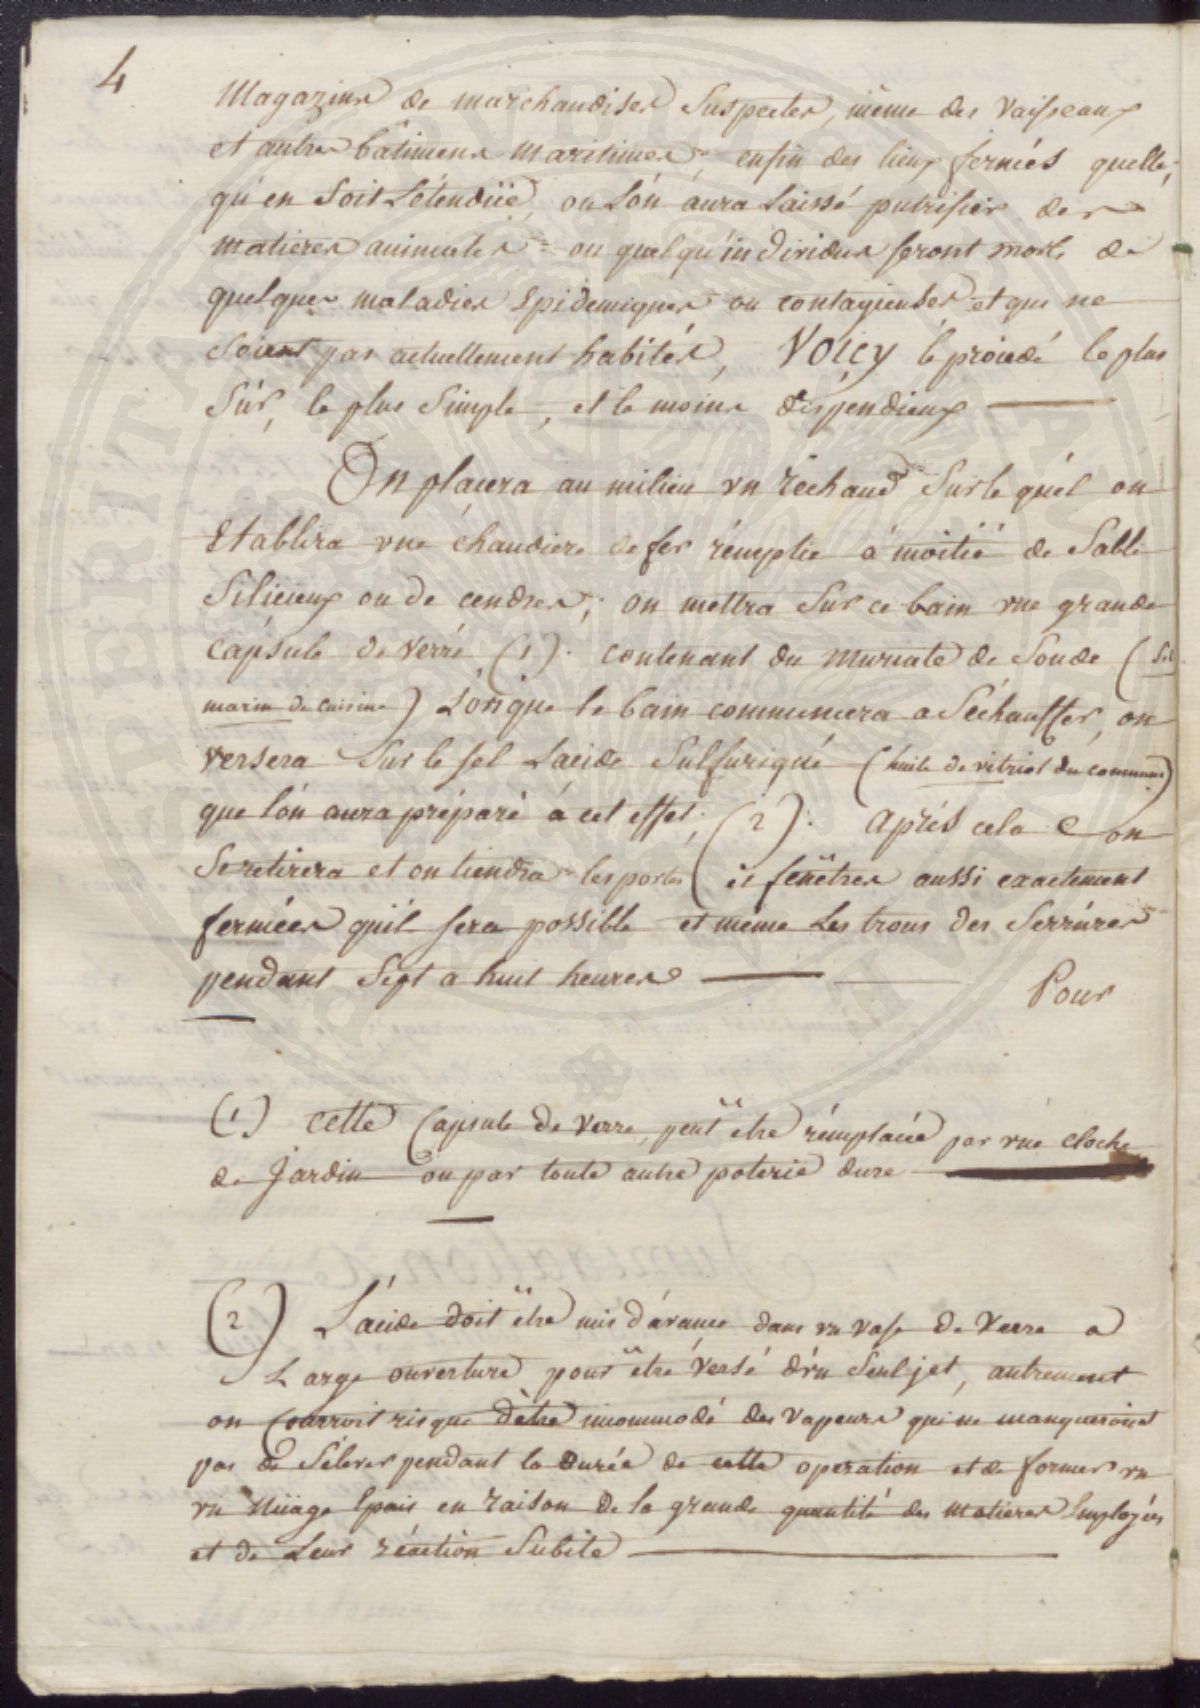 4
Magazins de marchandises Suspectes, même des Vaisseaux
et autres bâtimens maritimes, enfin des lieux fermés quelle,
qu'en soit L'étendüe, ou L'on aura Laissé putrifier des
matieres animales = ou quelqu'individus seront morts de
quelques maladies Epidemiques ou contagieuses et qui ne
soient pas actuellement habités, Voicy le procédé le plus
Sûr, le plus Simple, et le moins dispendieux
On placera au milieu un réchaud Surlequél on
Etablira une chaudiere de fer rémplie à moitié de Sable
Silicieux ou de cendres; on mettra Sur ce bain une grande
Capsule de Verré (1). contenant du Muriate de Soude (Sel
marin de cuisine) Lorsque le bain commencera a Séchauffer, on
versera Sur le sel Lacide Sulfuriqué (huile de vitriol du commune)
que l'ón aura préparé à cet effet; (2). Aprés cela on
Seretirera et on tiendra les portes et fenêtres aussi exactement
fermées qu'il sera possible et même Les trous des Serrures
pendant Sept a huit heures
Pour
(1) Cette Capsule de Verre, peut être rémplacée par une cloche
de Jardin ou par toute autre poterie dure
(2) L'acide doit être mis d'avance dans un vase de Verre a
Large ouverture pour être versé d'un Seul jet, autrement
on Courroit risque d'être incommodé des Vapeurs qui ne manqueroient
pas de S'élever pendant la durée de cette operation et de former un
un Nüage Epais en raison de la grande quantité des matieres Employées
et de Leur réaction Subite